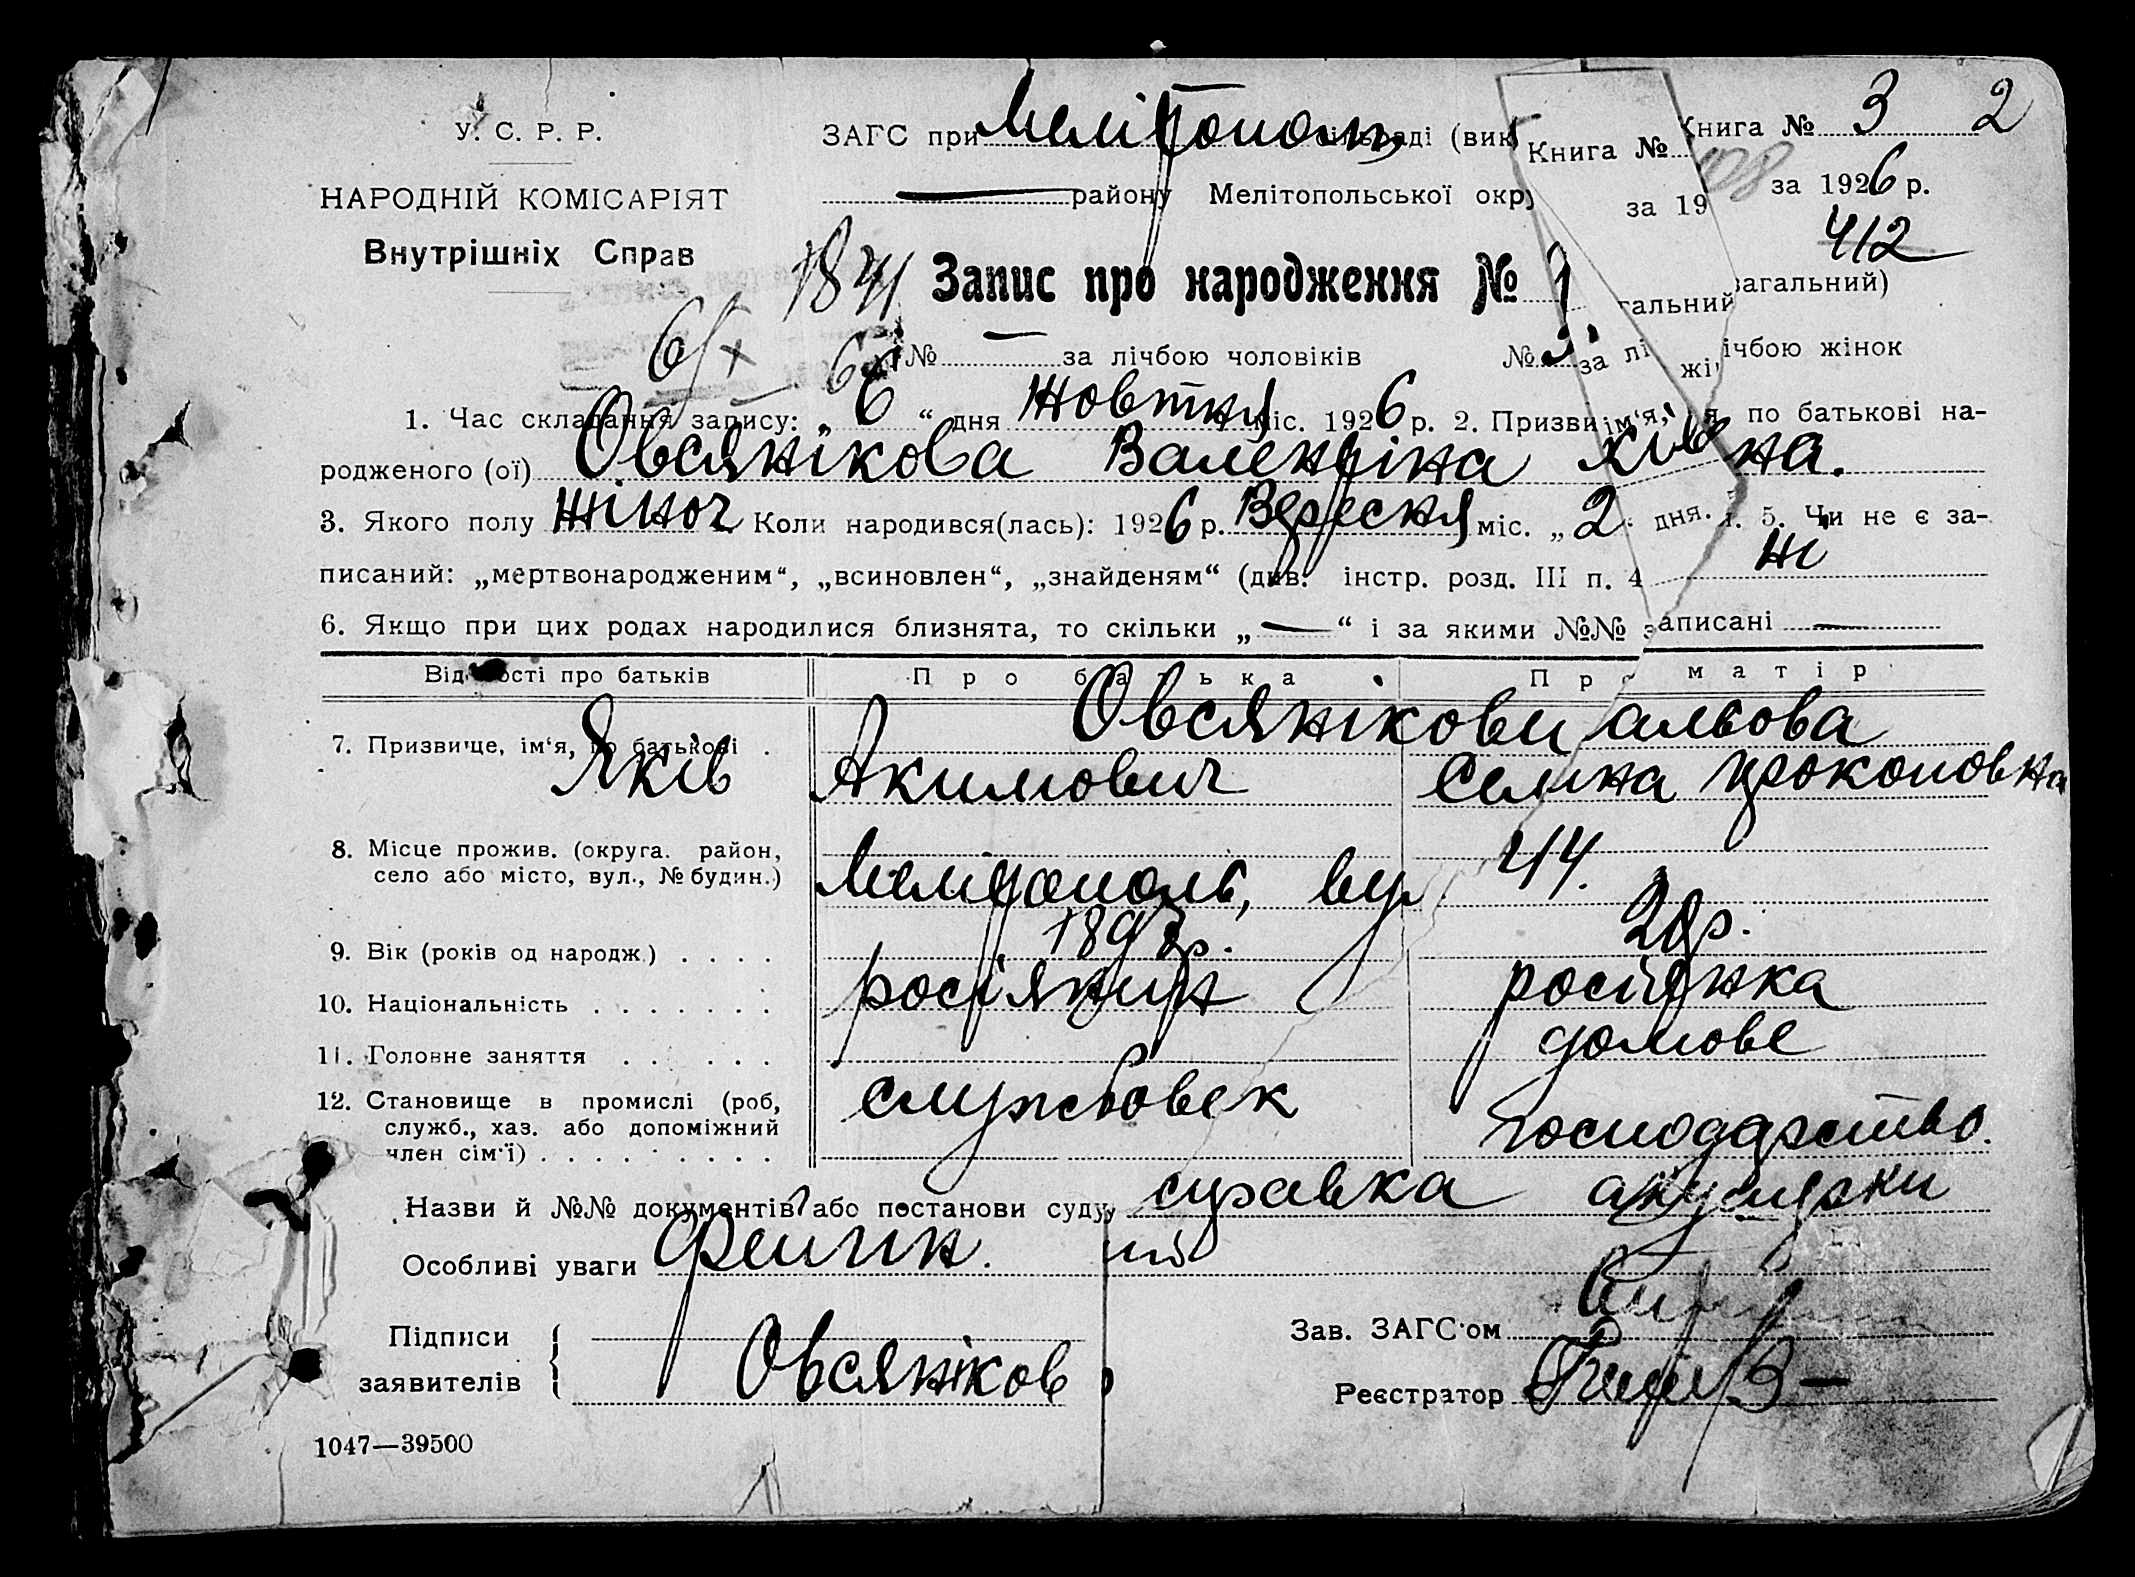 У. С. Р. Р.
НАРОДНІЙ КОМІСАРІЯТ
Внутрішніх Справ
ЗАГС при Мелітополь сільраді (вик
району Мелітопольської окр
Книга №
за 19
Книга № 3 2
за 1926 р.
412
1841 Запис про народження № 1
гальний загальний)
6/X
№ — за лічбою чоловіків № за лі жі ічбою жінок
1. Час складання запису: „ 6 “ дня жовтня міс. 1926 р. 2. Призви ім‘я, по батькові на-
родженого (ої) Овсянікова Валентіна на.
3. Якого полу жіноч Коли народився(лась): 1926 р. Вересня міс. „ 2 дня. 5. Чи не є за-
писаний: „мертвонародженим“, „всиновлен“, „знайденям“ (див. інстр. розд. III п. 4 ні
6. Якщо при цих родах народилися близнята, то скільки „ — “ і за якими №№ записані —
Від ості про батьків Про батька Про матір
7. Призвище, ім‘я, по батькові . Овсянікови
Яків Акимович Прокоповна
8. Місце прожив. (округа. район,
село або місто, вул., № будин.) Мелітополь, вул 44.
9. Вік (років од народж.) . . . .
10. Національність . . . . . . . росіянин росіянка
11. Головне заняття . . . . . . домове
12. Становище в промислі (роб, службовек
служб., хаз. або допоміжний господарство.
член сім‘ї) . . . . . . . . .
Назви й №№ документів або постанови суду справка акушерки
Особливі уваги
Підписи
заявителів Овсяніков
Зав. ЗАГС‘ом
Реєстратор
1047—39500